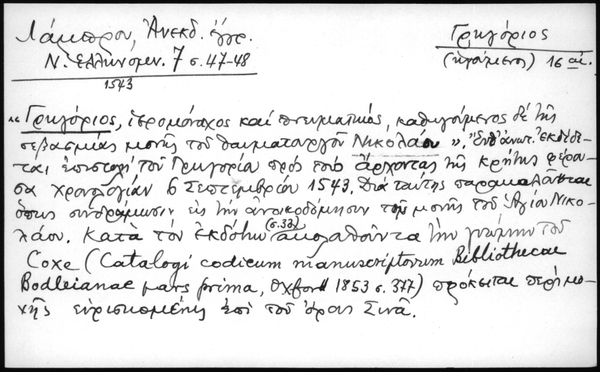 Λάμπρου, Ἀνεκδ. ἔγγρ.
Ν. Ἑλληνομν. 7 σ. 47-48
1543
Γρηγόριος
(ἡγούμενος) 16 αἰ.
"Γρηγόριος, ἱερομόναχος καὶ πνευματικός, καθηγούμενος δὲ τῆς
σεβασμίας μονῆς τοῦ θαυματουργοῦ Νικολάου",
ται ἐπιστολὴ τοῦ Γρηγορίου πρὸς τοὺς ἄρχοντας τῆς Κρήτης φέρου-
σα χρονολογίαν 6 Σεπτεμβρίου 1543. Διὰ ταύτης παρακαλοῦνται
ὅπως συνδράμωσιν εἰς τὴν ἀνοικοδόμησιν τῆς μονῆς τοῦ Ἁγίου Νικο-
λάου. Κατὰ τὸν ἐκδότην (σ. 33) ἀκολουθοῦντα τὴν γνώμην τοῦ
Coxe (Catalogi codicum manuscriptorum Bibliothecae
Bodleianae pars prima, Oxford 1853 σ. 377) πρόκειται περὶ μο-
νῆς εὑρισκομένης ἐπὶ τοῦ ὄρους Σινᾶ.